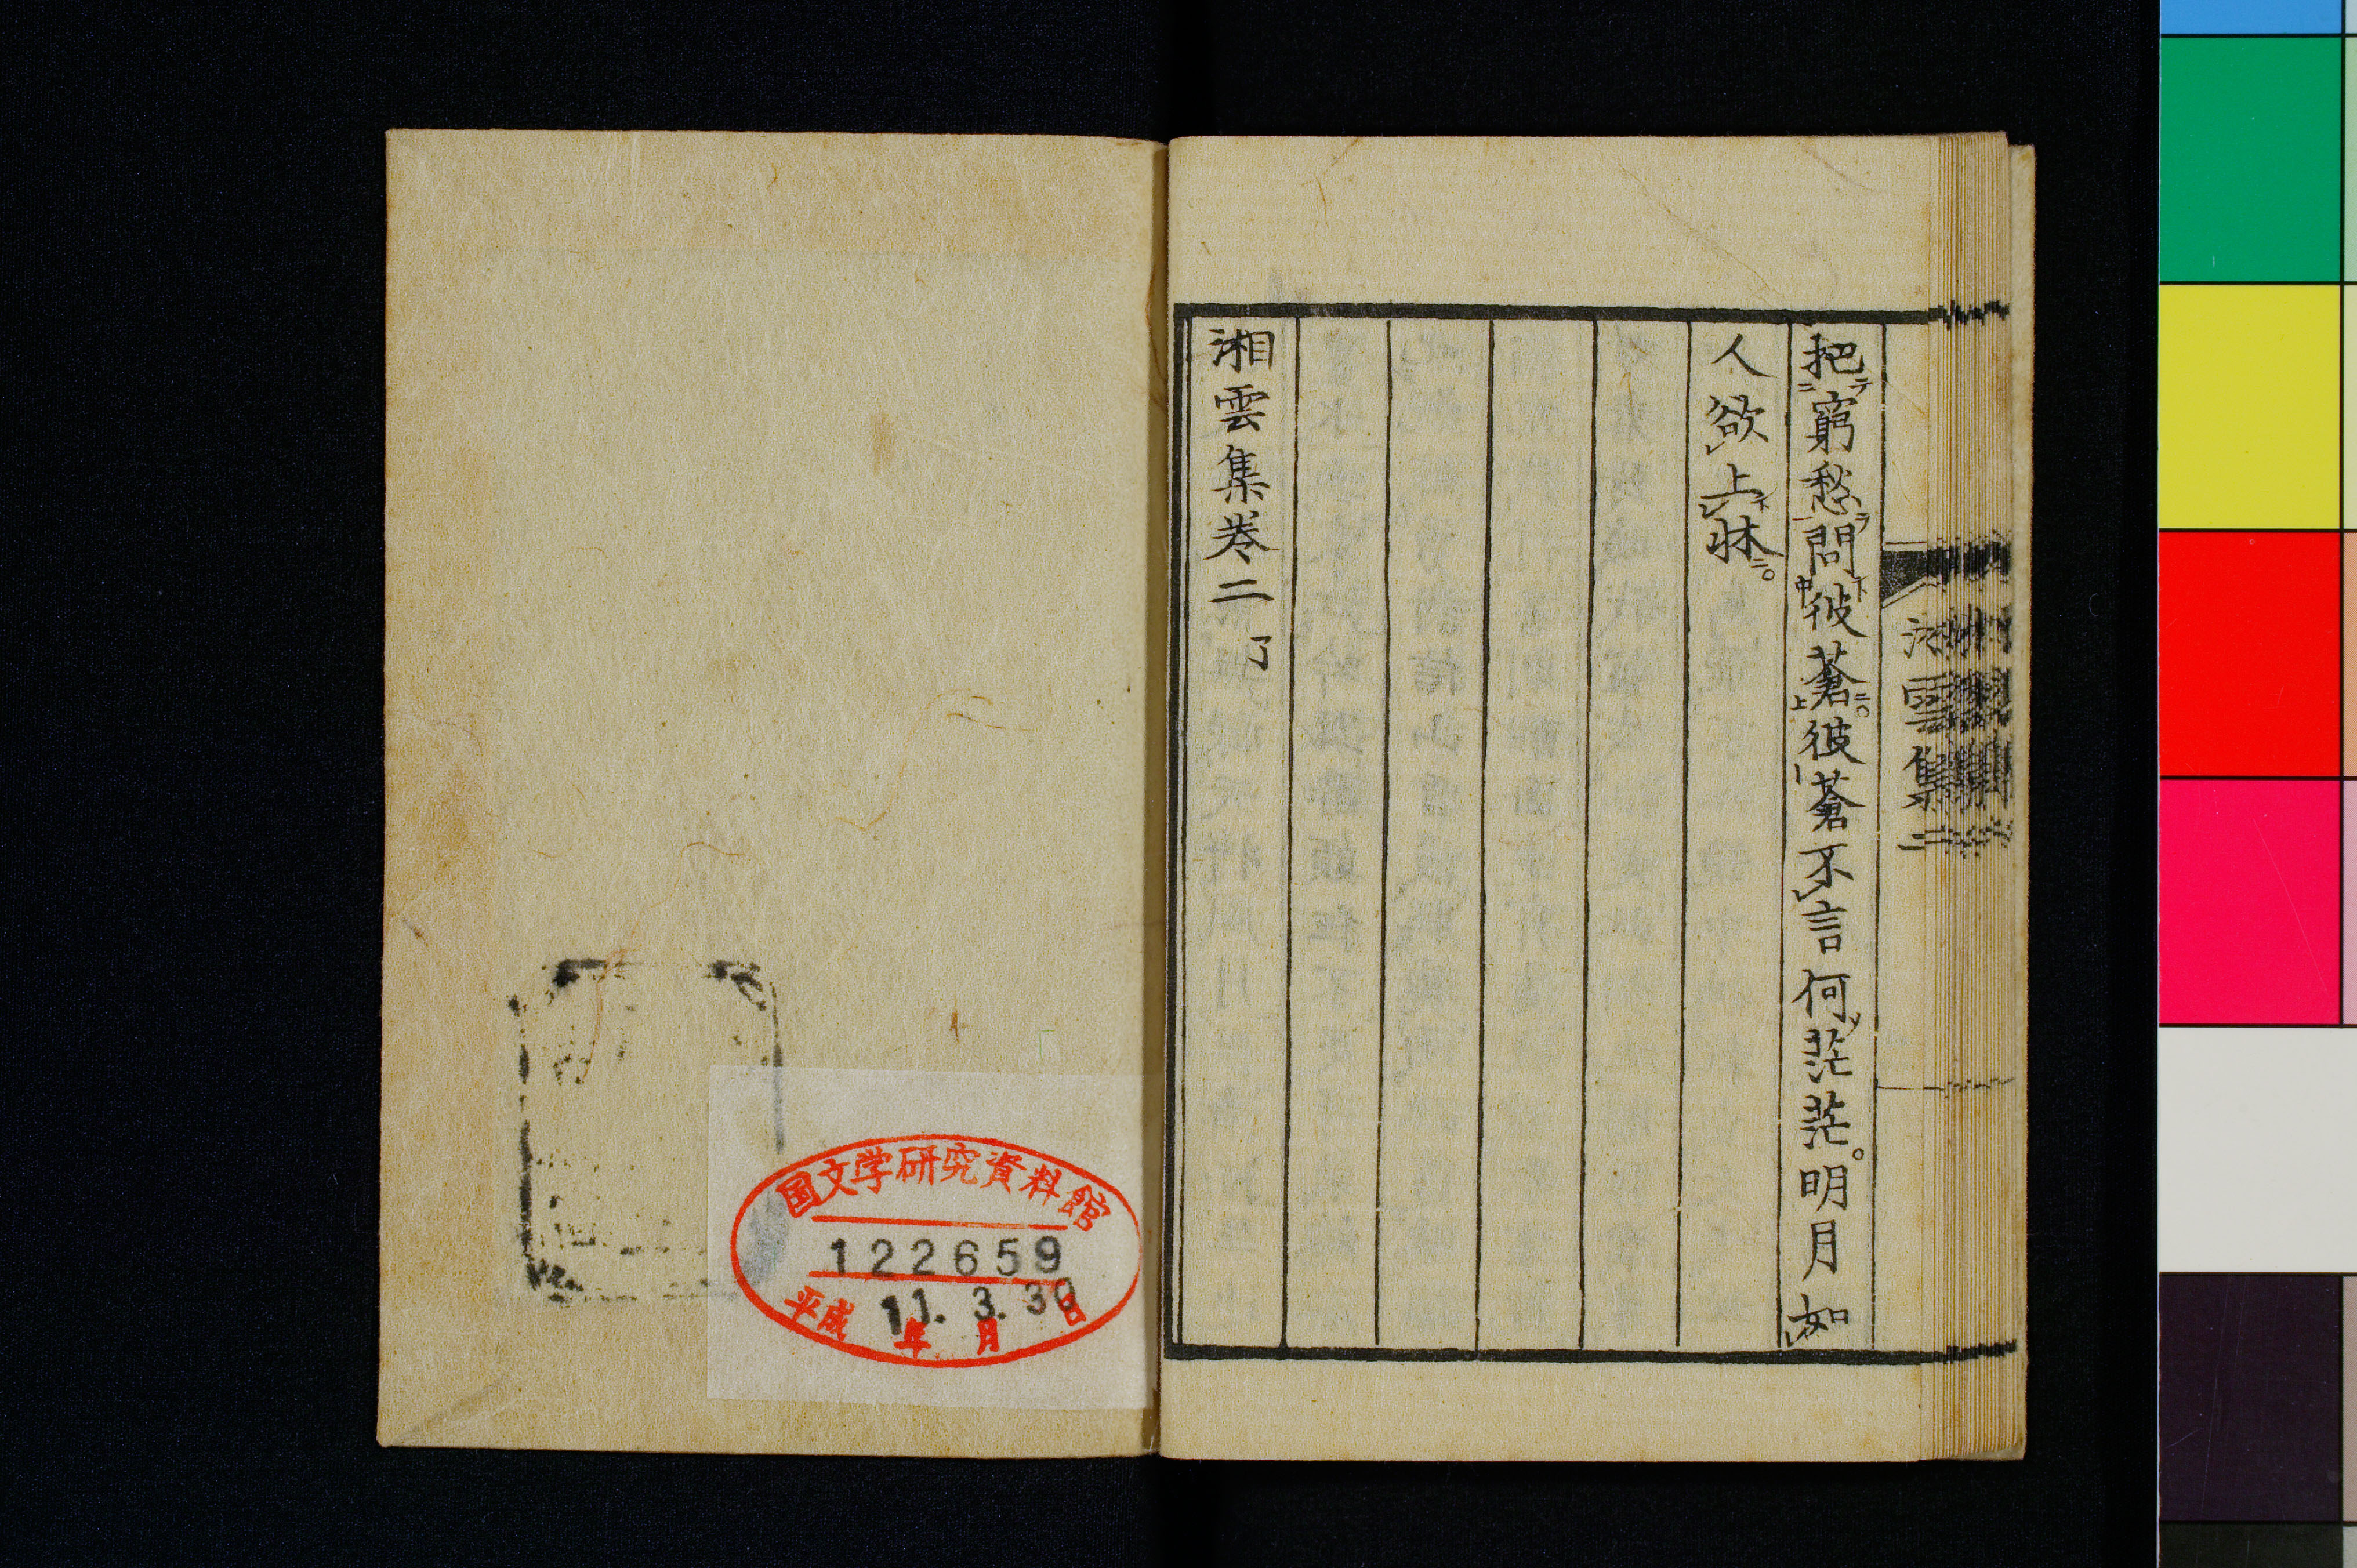 把窮愁問彼蒼彼蒼不言何茫茫明月如
人欲上牀
湘雲集卷二 了
湘雲集 二
国文学研究資料館
122659
平成 11. 3. 30
年 月 日